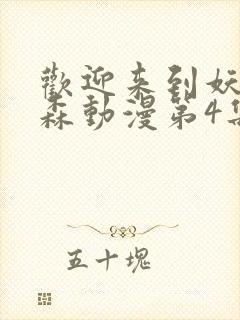 歡迎来到妖
森動漫第4集
五十塊